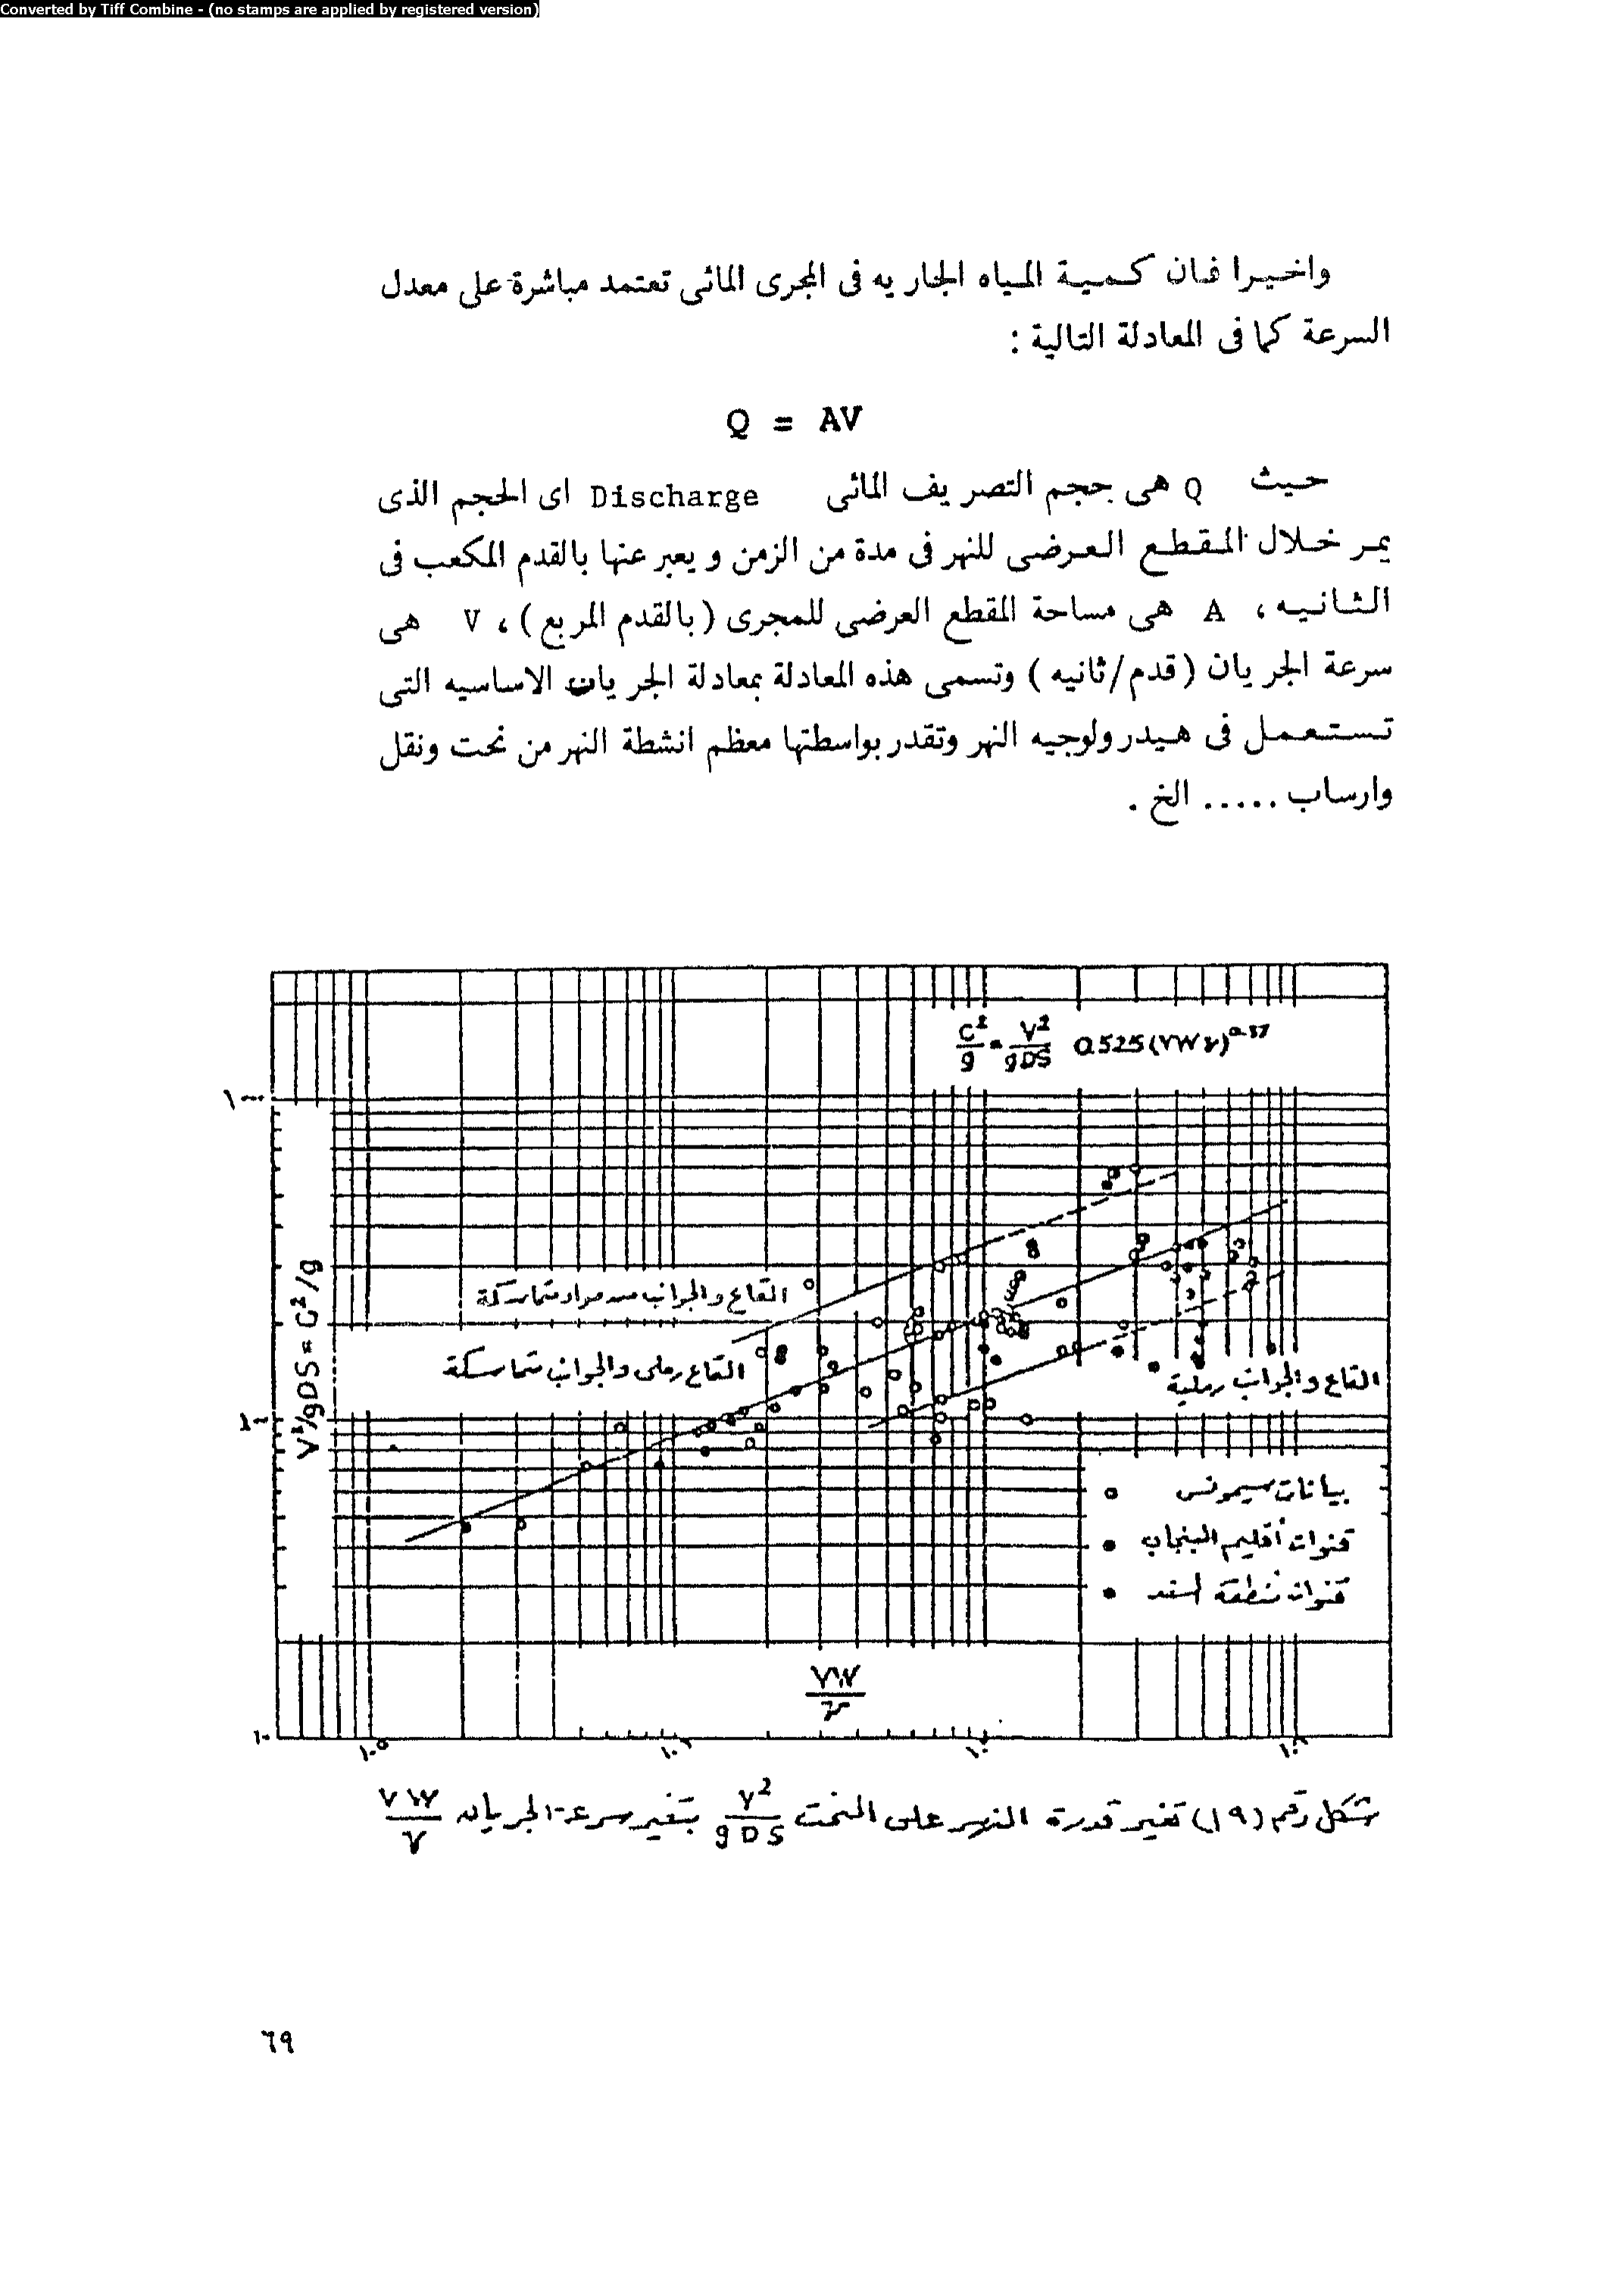 Converted by Tiff Combine - (no stamps are applied by registered version)
واخيرا فان كمية المياه الجاريه فى المجرى المائى تعتمد مباشرة على معدل
السرعة كما فى المعادلة التالية :
Q = AV
حيث Q هى حجم التصريف المائى Discharge اى الحجم الذى
يمر خلال المقطع العرضى للنهر فى مدة من الزمن ويعبر عنها بالقدم المكعب فى
الثانيه ، A هى مساحة المقطع العرضى للمجرى (بالقدم المربع) ، V هى
سرعة الجريان (قدم/ثانيه) وتسمى هذه المعادلة بمعادلة الجريان الاساسيه التى
تستعمل فى هيدرولوجيه النهر وتقدر بواسطتها معظم انشطة النهر من نحت ونقل
وارساب ..... الخ .
C²/g = V²/gDS 0.525(VW γ)^0.37
١٠٠٠
القاع والجوانب من مواد متماسكة
القاع رملى والجوانب متماسكة
القاع والجوانب رملية
V²/gDS = C²/g
١٠٠
بيانات سيمونس
قنوات أقليم البنجاب
قنوات منطقة السند
VW/γ
١٠
شكل رقم (١٩) تغير قدرة النهر على النحت V²/gDS بتغير سرعة الجريان VW/γ
٦٩